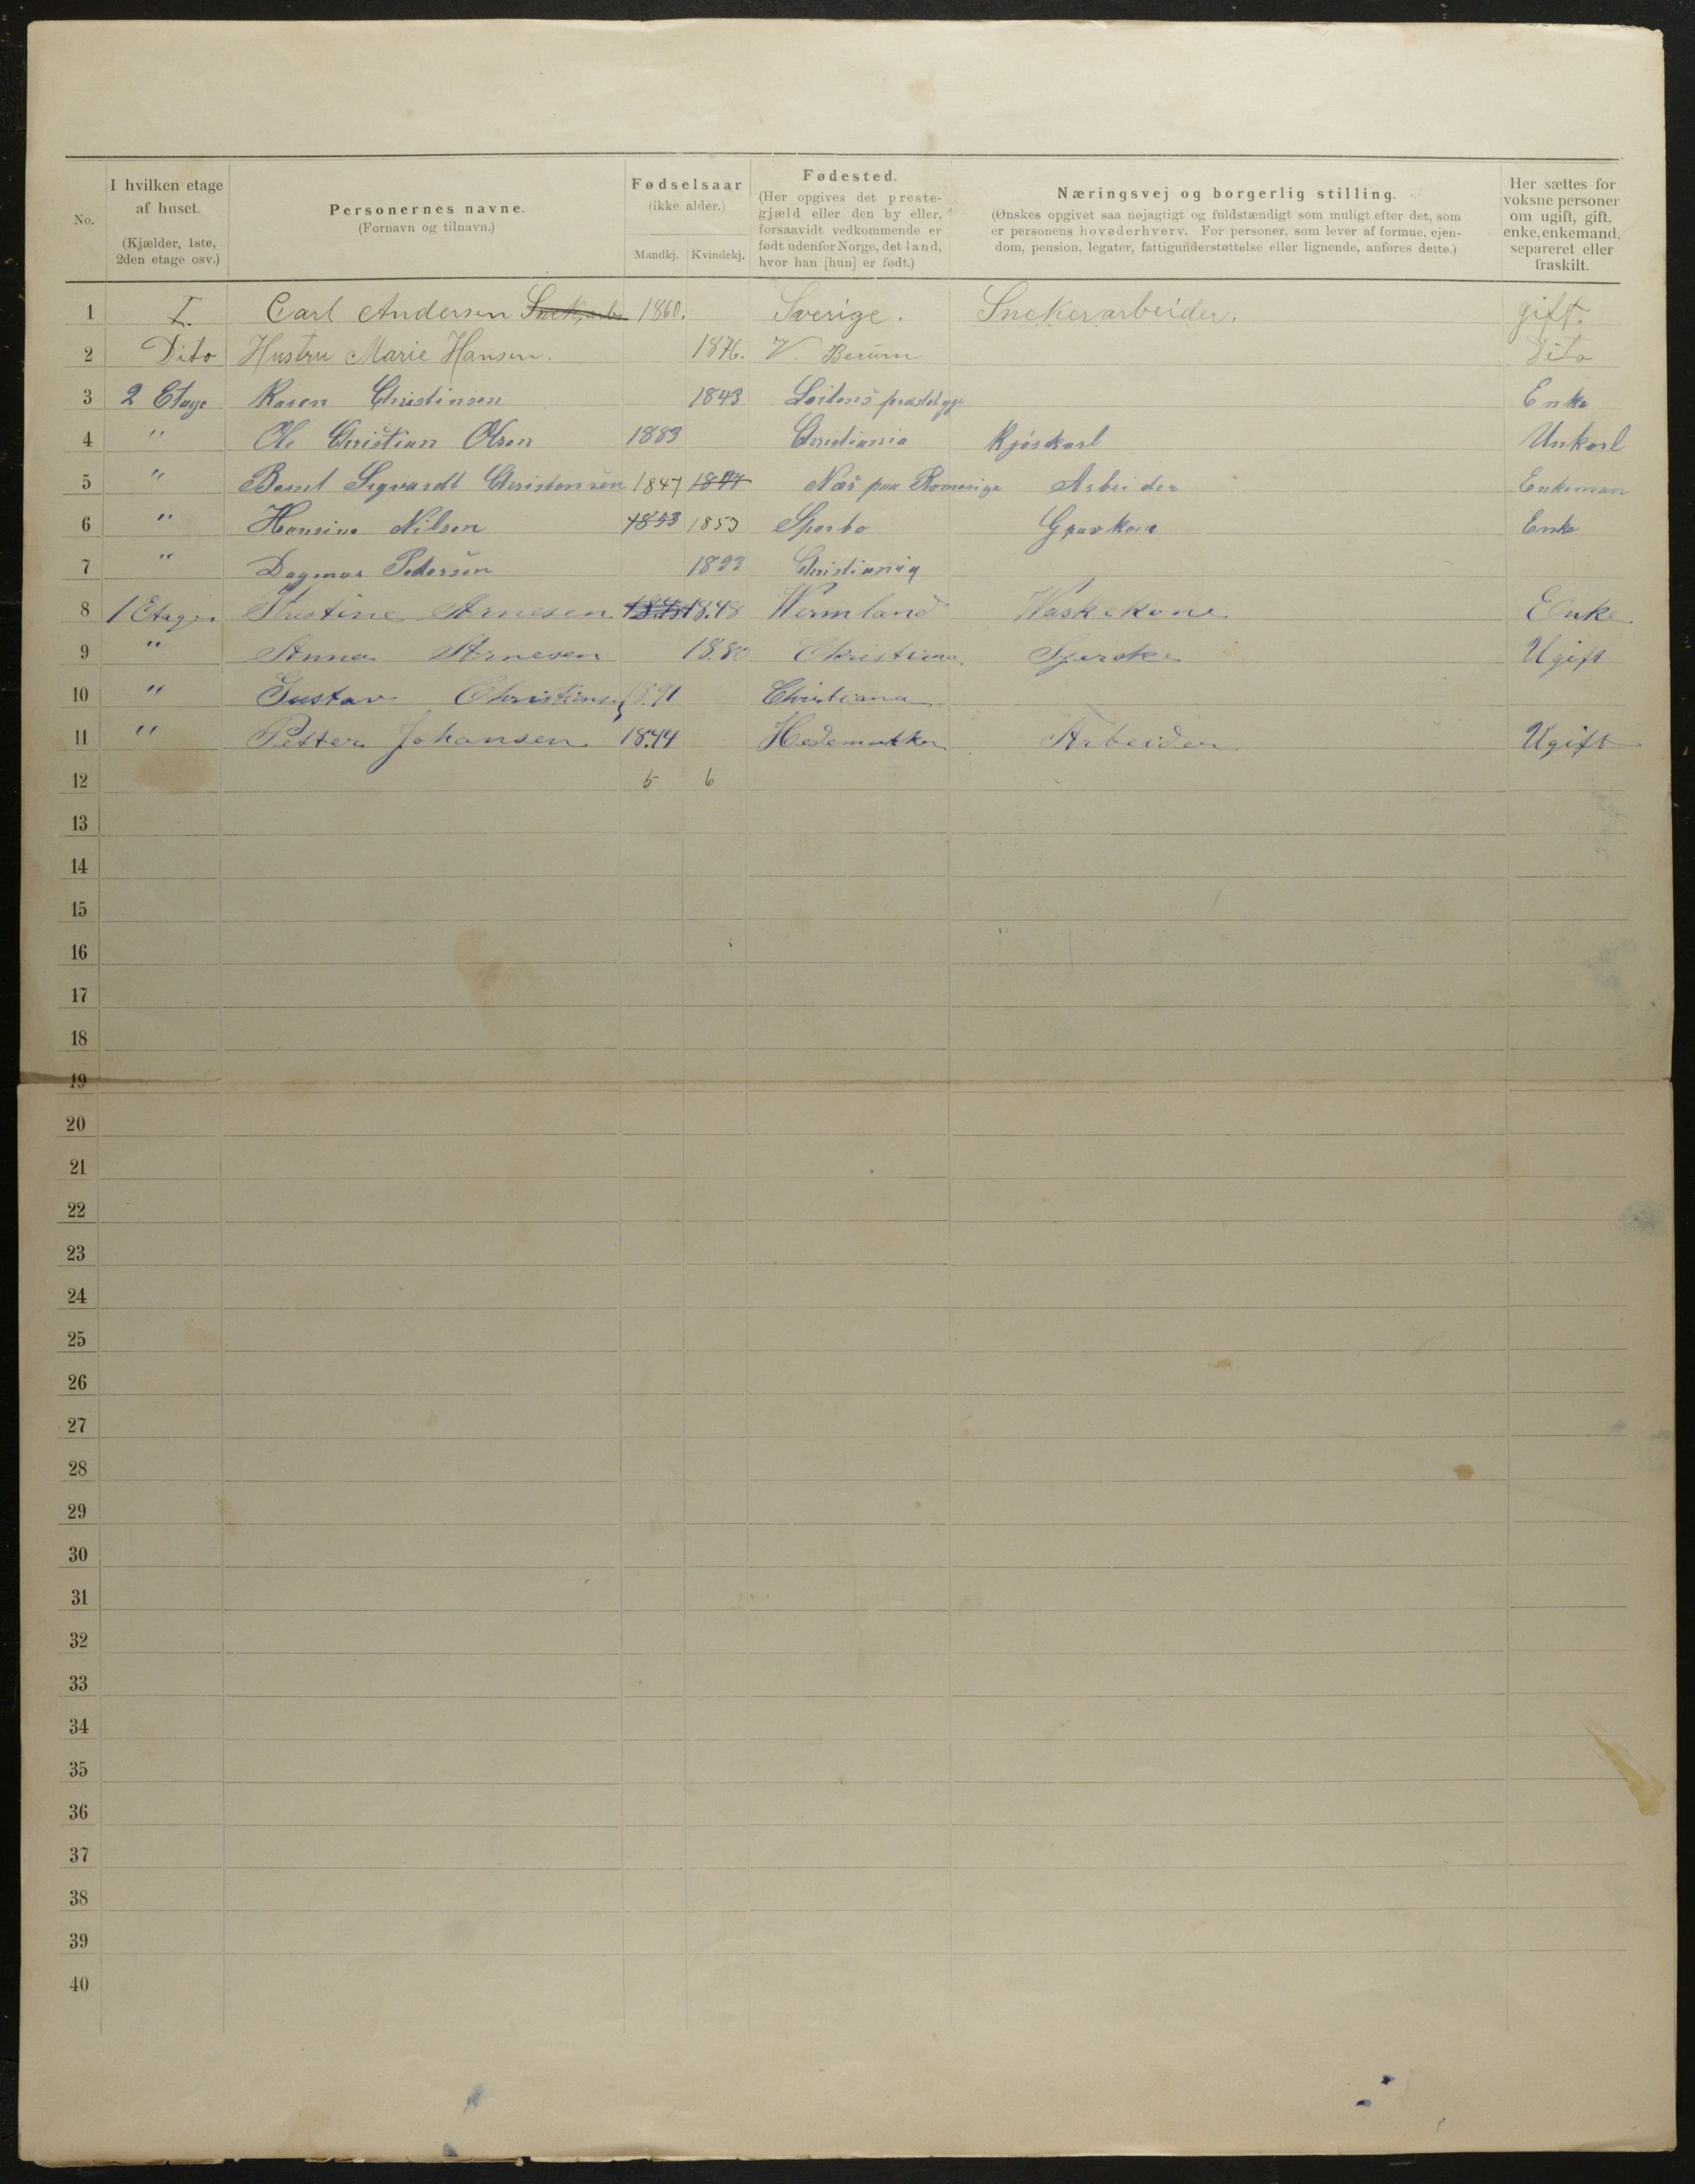 No. I hvilken etage af huset. (Kjælder, 1ste, 2den etage osv.) Personernes navne. (Fornavn og tilnavn.) Fødselsaar (ikke alder.) Mandkj. Kvindekj. Fødested. (Her opgives det prestegjæld eller den by eller, forsaavidt vedkommende er født udenfor Norge, det land, hvor han [hun] er født.) Næringsvej og borgerlig stilling. (Ønskes opgivet saa nøjagtigt og fuldstændigt som muligt efter det, som er personens hovederhverv. For personer, som lever af formue, ejendom, pension, legater, fattigunderstøttelse eller lignende, anføres dette.) Her sættes for voksne personer om ugift, gift, enke, enkemand, separeret eller fraskilt.
1 I. Carl Andersen Snek,arb. 1860. Sverige. Snekerarbeider. gift.
2 Dito Hustru Marie Hansen. 1876. V. Berum Dito
3 2 Etage Karen Christinsen 1843 Loitens Enke
4 " Ole Christian Olsen 1883 Christiania Kjørekarl Unkarl
5 " Bernt Sigvardt Christensen 1847 1847 Næs paa Romerige Arbeider Enkeman
6 " Hansine Nilsen 1853 1853 Sparbo Enke
7 " Dagmar Pedersen 1893 Christiania
8 1 Etage Kristine Arnesen 1848 18.48 Wermland Waskekone Enke.
9 " Anna Arnesen 18.80 Christiana. Syerske Ugift
10 " Gustav Christians. 18.91 Christiana
11 " Petter Johansen 18.44 Hedemarken Arbeider Ugift
12 5 6
13
14
15
16
17
18
19
20
21
22
23
24
25
26
27
28
29
30
31
32
33
34
35
36
37
38
39
40